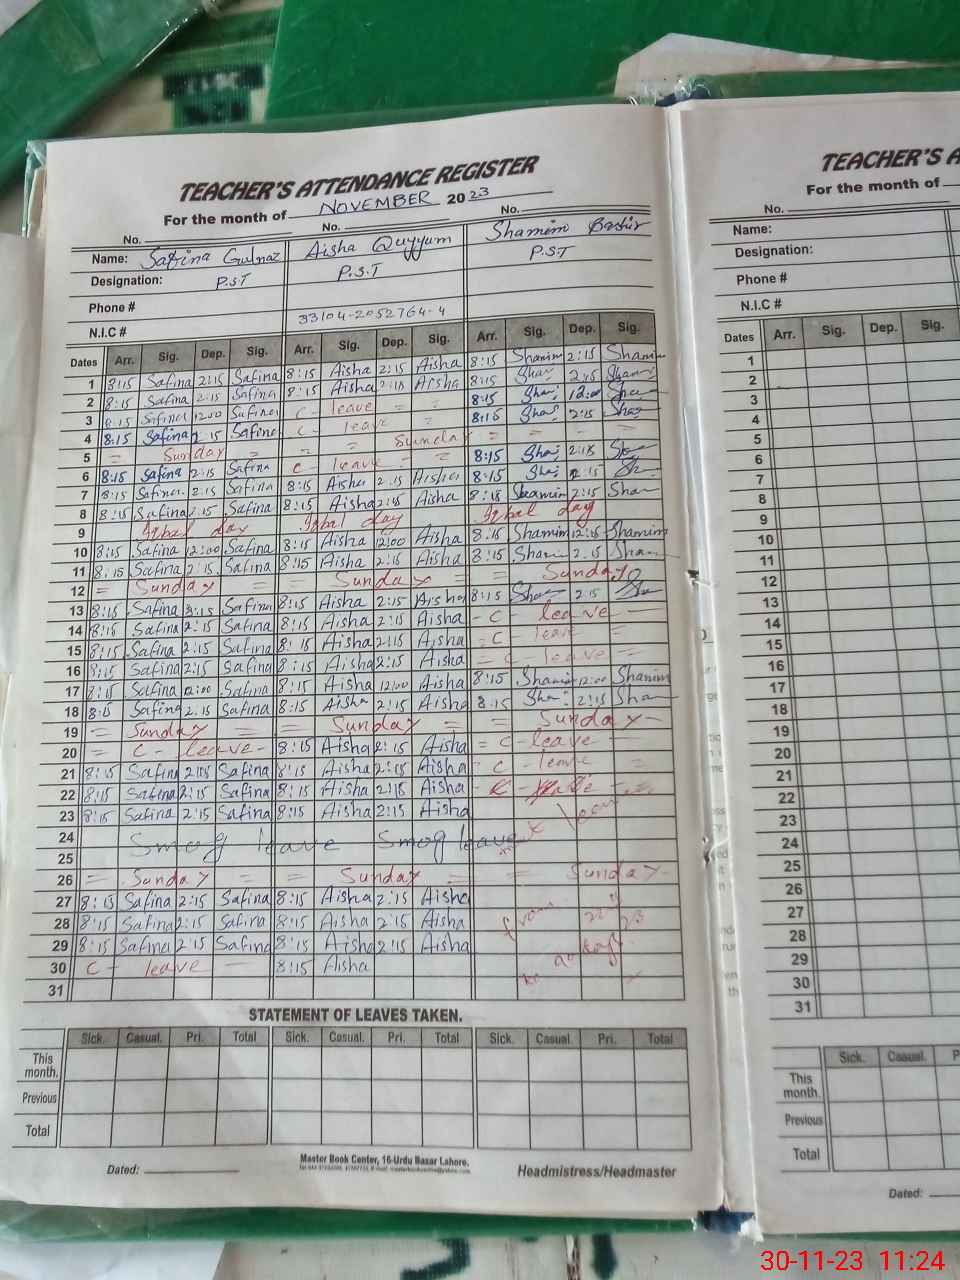 TEACHER'S ATTENDANCE REGISTER
For the month of NOVEMBER 2023
No. No. No.
Name: Safina Gulnaz Aisha Quyyum Shamim Bashir
Designation: P.S.T P.S.T P.S.T
Phone #
N.I.C # 33104-2052764-4
Dates Arr. Sig. Dep. Sig. Arr. Sig. Dep. Sig. Arr. Sig. Dep. Sig.
1 8:15 Safina 2:15 Safina 8:15 Aisha 2:15 Aisha 8:15 Shamim 2:15 Shamim
2 8:15 Safina 2:15 Safina 8:15 Aisha 2:15 Aisha 8:15 Sha 2:15
3 8:15 Safina 12:00 Safina C - leave = = 8:15 Sha 12:00 Sha
4 8:15 Safina 2:15 Safina C - leave = 8:15 Sha 2:15 Sha
5 = Sunday = = = Sunday = = - -
6 8:15 Safina 2:15 Safina C - leave - = 8:15 Sha 2:15
7 8:15 Safina 2:15 Safina 8:15 Aisha 2:15 Aisha 8:15 Sha 2:15
8 8:15 Safina 2:15 Safina 8:15 Aisha 2:15 Aisha 8:15 Shamim 2:15 Sha
9 Iqbal day Iqbal day Iqbal day
10 8:15 Safina 12:00 Safina 8:15 Aisha 12:00 Aisha 8:15 Shamim 12:15 Shamim
11 8:15 Safina 2:15 Safina 8:15 Aisha 2:15 Aisha 8:15 Sham 2:15 Sham
12 = Sunday = = Sunday = = Sunday
13 8:15 Safina 2:15 Safina 8:15 Aisha 2:15 Aisha 8:15 Sha 2:15 Sha
14 8:15 Safina 2:15 Safina 8:15 Aisha 2:15 Aisha - C - leave -
15 8:15 Safina 2:15 Safina 8:15 Aisha 2:15 Aisha = C - leave =
16 8:15 Safina 2:15 Safina 8:15 Aisha 2:15 Aisha = C - leave =
17 8:15 Safina 12:00 Safina 8:15 Aisha 12:00 Aisha 8:15 Shamim 12:00 Shamim
18 8:15 Safina 2:15 Safina 8:15 Aisha 2:15 Aisha 8:15 Sha 2:15 Sham
19 = Sunday = = Sunday = = Sunday -
20 = C - leave - 8:15 Aisha 2:15 Aisha = C - leave -
21 8:15 Safina 2:15 Safina 8:15 Aisha 2:15 Aisha - C - leave =
22 8:15 Safina 2:15 Safina 8:15 Aisha 2:15 Aisha
23 8:15 Safina 2:15 Safina 8:15 Aisha 2:15 Aisha
24 Smog leave Smog leave
25
26 = Sunday = = Sunday = = Sunday -
27 8:15 Safina 2:15 Safina 8:15 Aisha 2:15 Aisha from
28 8:15 Safina 2:15 Safina 8:15 Aisha 2:15 Aisha
29 8:15 Safina 2:15 Safina 8:15 Aisha 2:15 Aisha
30 C - leave - 8:15 Aisha
31
STATEMENT OF LEAVES TAKEN.
Sick. Casual. Pri. Total Sick. Casual. Pri. Total Sick. Casual. Pri. Total
This month.
Previous
Total
Master Book Center, 16-Urdu Bazar Lahore.
Dated: Headmistress/Headmaster
TEACHER'S A
For the month of
No.
Name:
Designation:
Phone #
N.I.C #
Dates Arr. Sig. Dep. Sig.
1
2
3
4
5
6
7
8
9
10
11
12
13
14
15
16
17
18
19
20
21
22
23
24
25
26
27
28
29
30
31
Sick. Casual. P
This month.
Previous
Total
Dated:
30-11-23 11:24